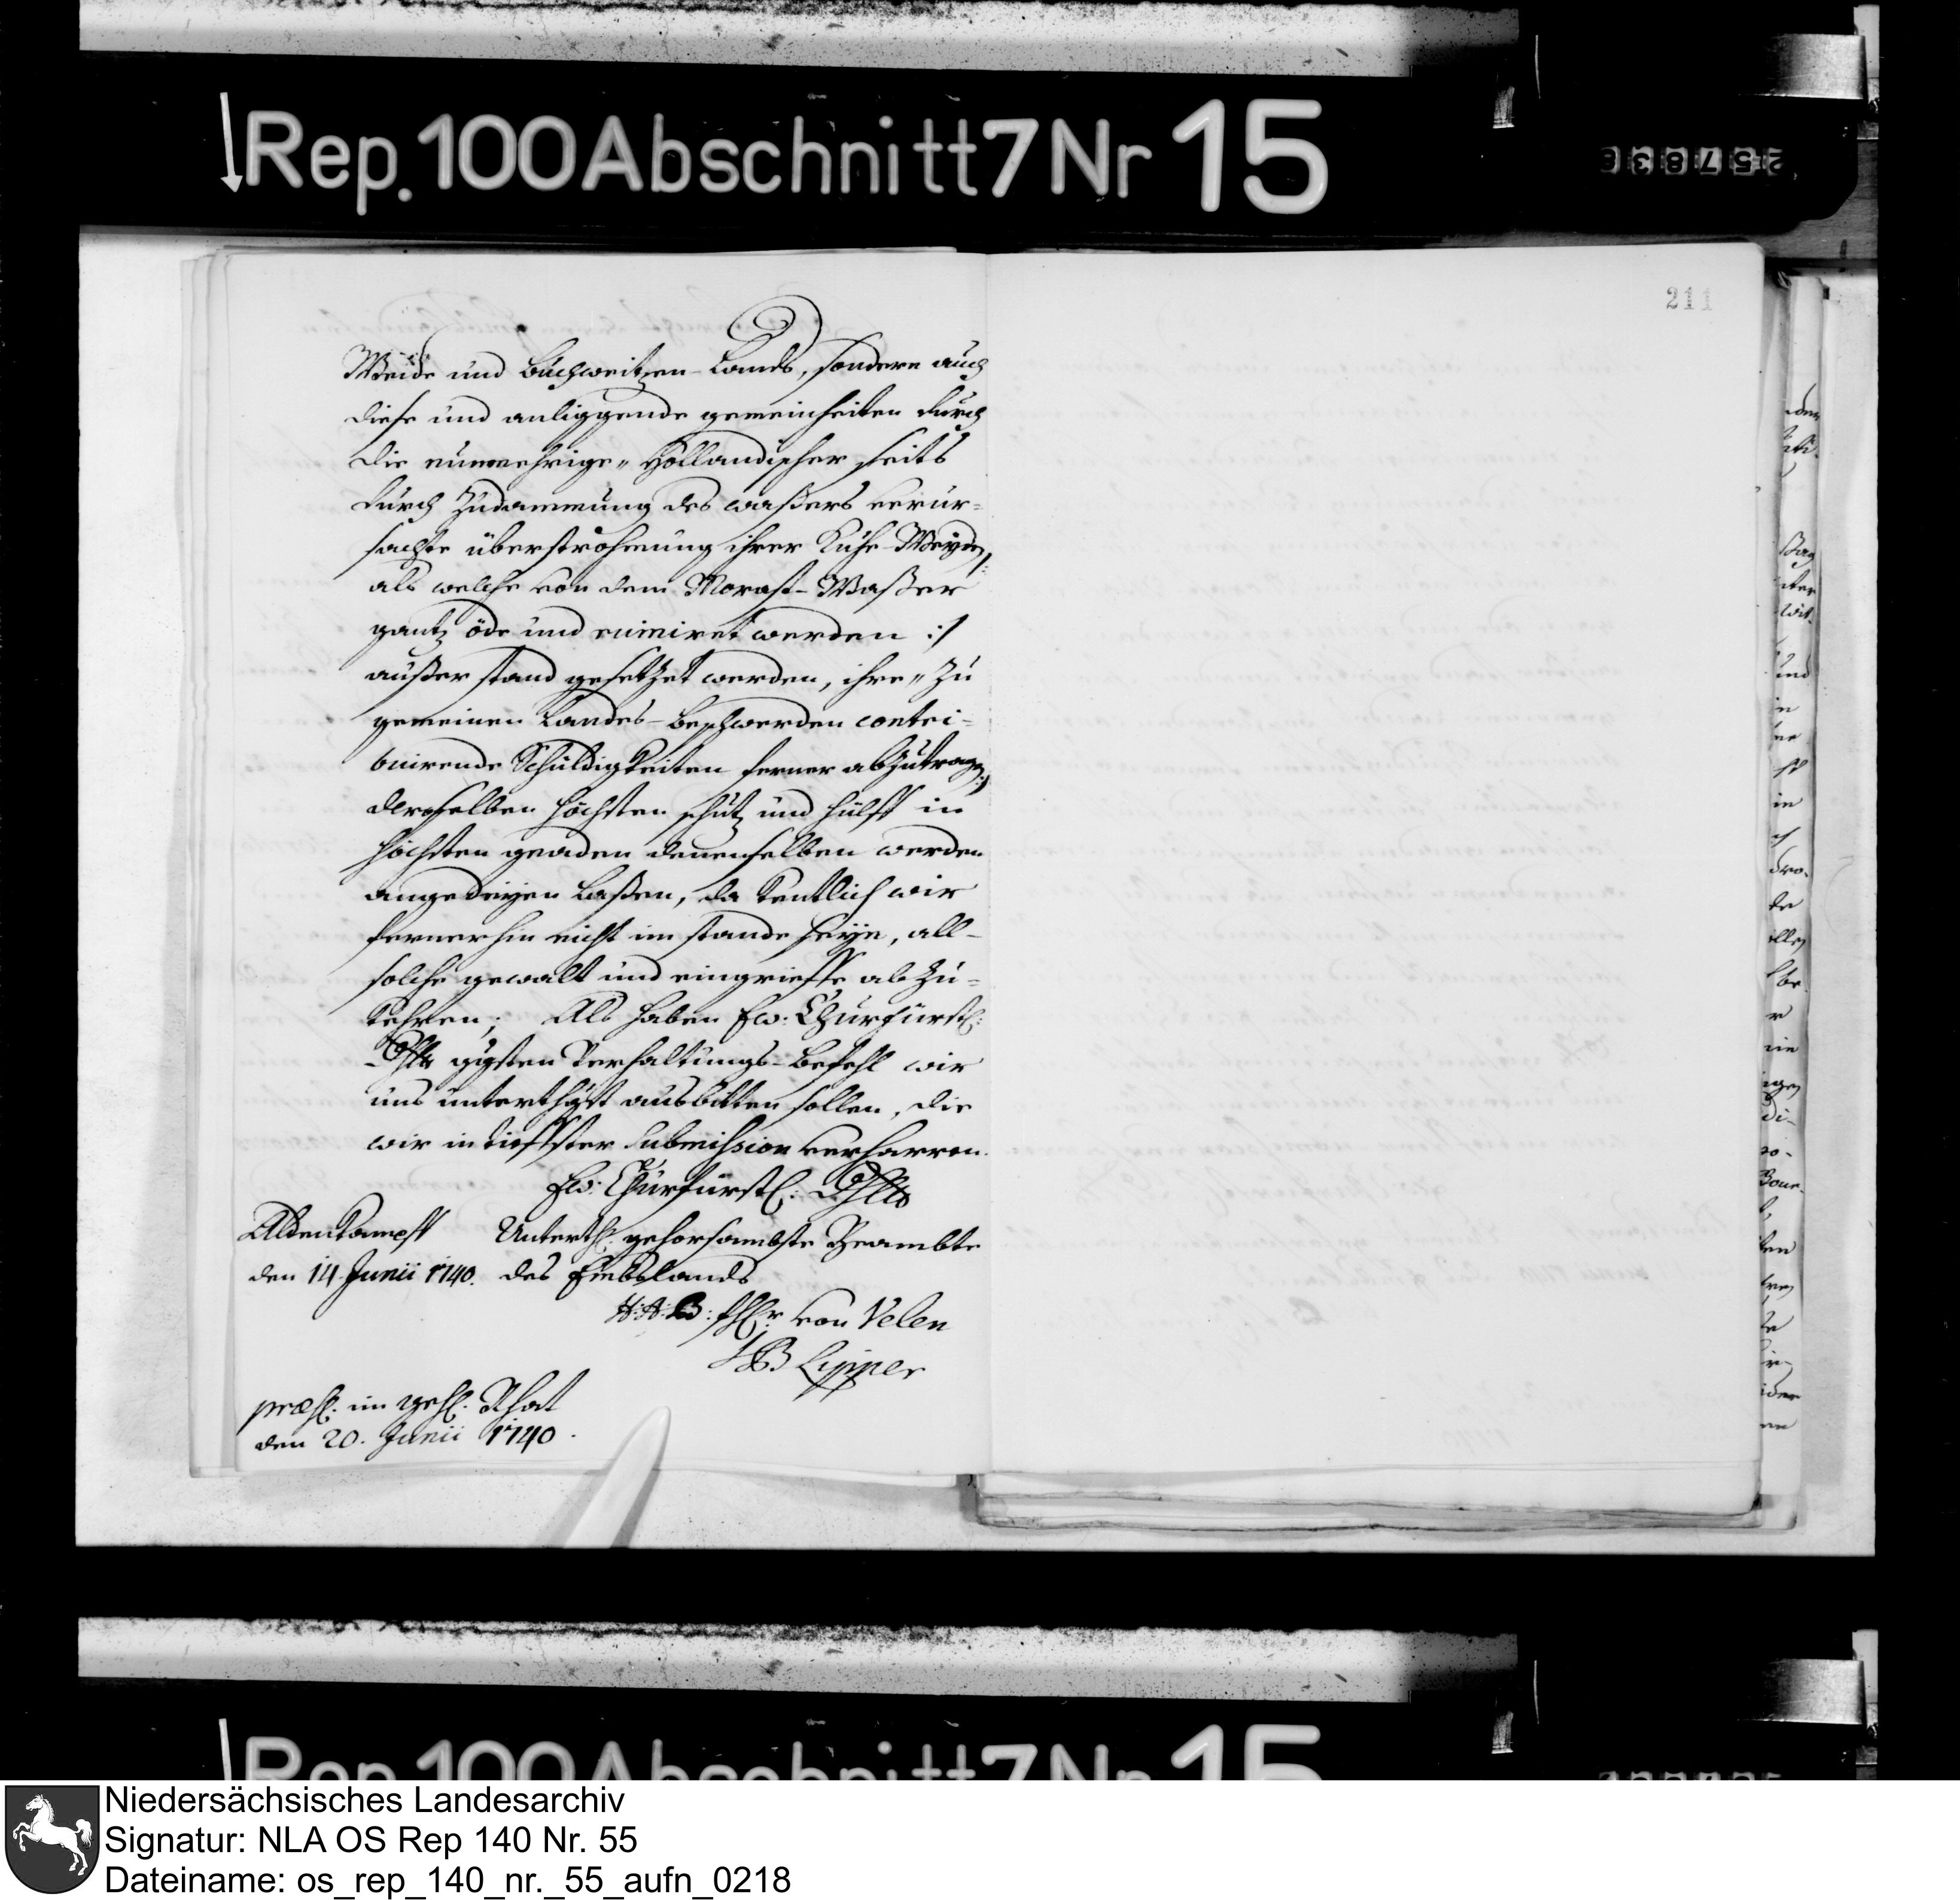 Rep. 100 Abschnitt 7 Nr 15
211
Weide und buchweitzen-Lands, sondern auch
diese und anliggende gemeinheiten durch
die nunmehrige „ Holländischer seits
durch Zudammung des waßers verur-
sachte überströhmung ihrer Kuhe-Weyde,
als welche von dem Morast-Waßer
gantz öde und ruiniret werden :/
außer stand gesetzet werden, ihre „ zu
gemeinen Landes-beschwerden contri-
buirende Schuldigkeiten ferner abzutragen
deroselben höchsten schutz und hülff in
höchsten gnaden denenselben werden
angedeyen laßen, da kentlich wir
fernerhin nicht im stande seyn, all-
solche gewalt und eingrieffe abzu-
kehren; Als haben Ew: Churfürstl:
Dhlt ggsten Verhaltungs-befehl wir
uns unterthgst ausbitten sollen, die
wir in tieffster submission verharren.
Ew: Churfürstl: Dhlt
Aldenkampff Unterth: gehorsambste Beambte
den 14 Junii 1740. des Embslands
H: A: B: fhr: von Velen
HB Lipper
præs: im geh: Rhat
den 20. Junii 1740.
Rep. 100 Abschnitt 7 Nr 15
Niedersächsisches Landesarchiv
Signatur: NLA OS Rep 140 Nr. 55
Dateiname: os_rep_140_nr._55_aufn_0218